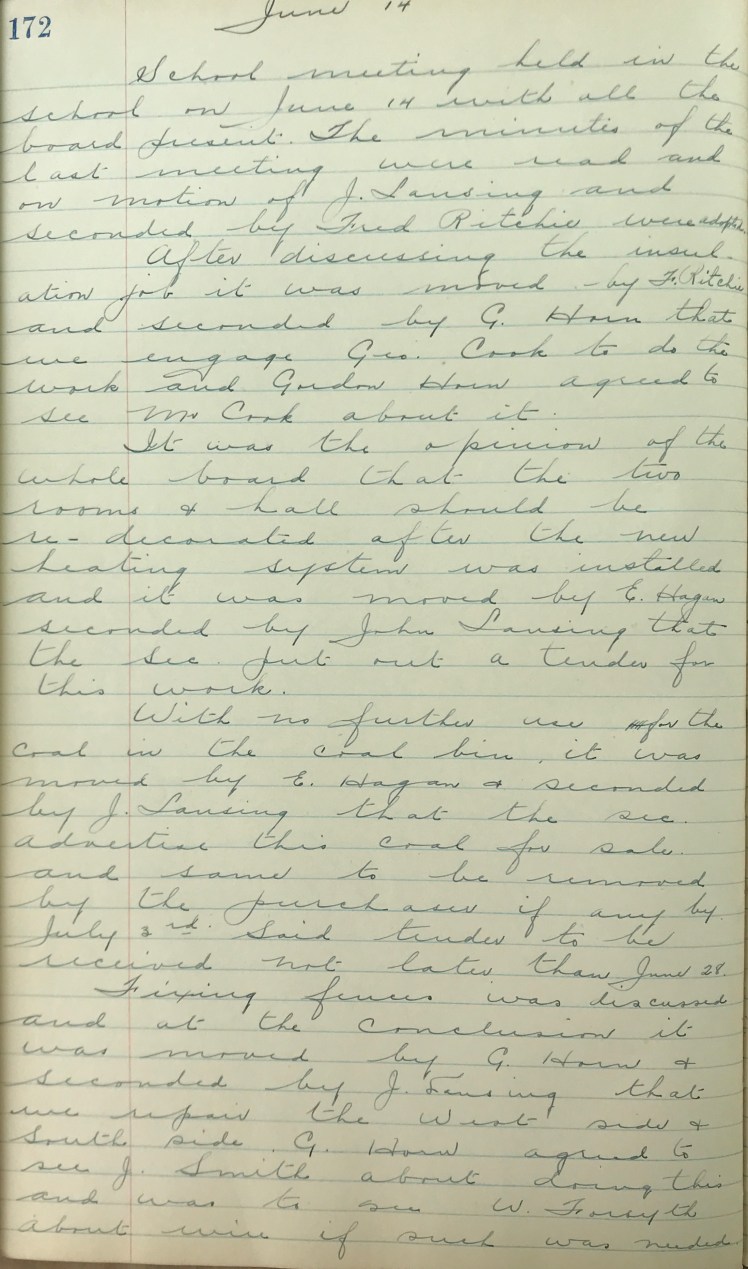 June 14
172
School meeting held in the
school on June 14 with all the
board present. The minutes of the
last meeting were read and
on motion of J. Lansing and
seconded by Fred Ritchie were adopted.
After discussing the insul-
ation job it was moved by F. Ritchie
and seconded by G. Horn that
we engage Geo. Cook to do the
work and Gordon Horn agreed to
see Mr Cook about it.
It was the opinion of the
whole board that the two
rooms & hall should be
re-decorated after the new
heating system was installed
and it was moved by E. Hagan
seconded by John Lansing that
the sec. put out a tender for
this work.
With no further use for the
coal in the coal bin, it was
moved by E. Hagan & seconded
by J. Lansing that the sec.
advertise this coal for sale
and same to be removed
by the purchaser if any by
July 3rd. Said tender to be
received not later than June 28.
Fixing fences was discussed
and at the conclusion it
was moved by G. Horn &
seconded by J. Lansing that
we repair the West side &
South side. G. Horn agreed to
see J. Smith about doing this
and was to see W. Forsyth
about wire if such was needed.